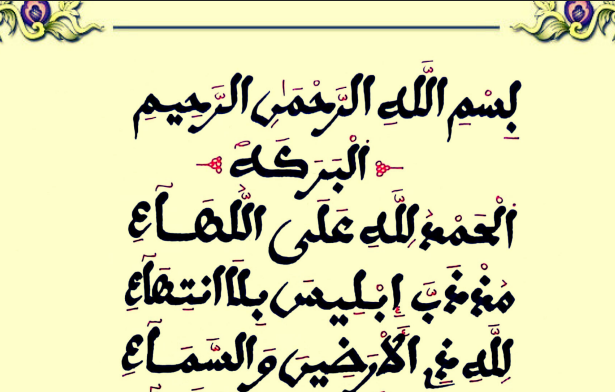 بِسْمِ اللَّهِ الرَّحْمَٰنِ الرَّحِيمِ
اَلْبَرَكَةْ
اَلْحَمْدُ لِلَّهِ عَلَى اللُّهَآءِ
مُذْ ذَبَّ إِبْلِيسَ بِلَا انْتِهَآءِ
لِلَّهِ فِي الْأَرَضِينَ وَالسَّمَآءِ